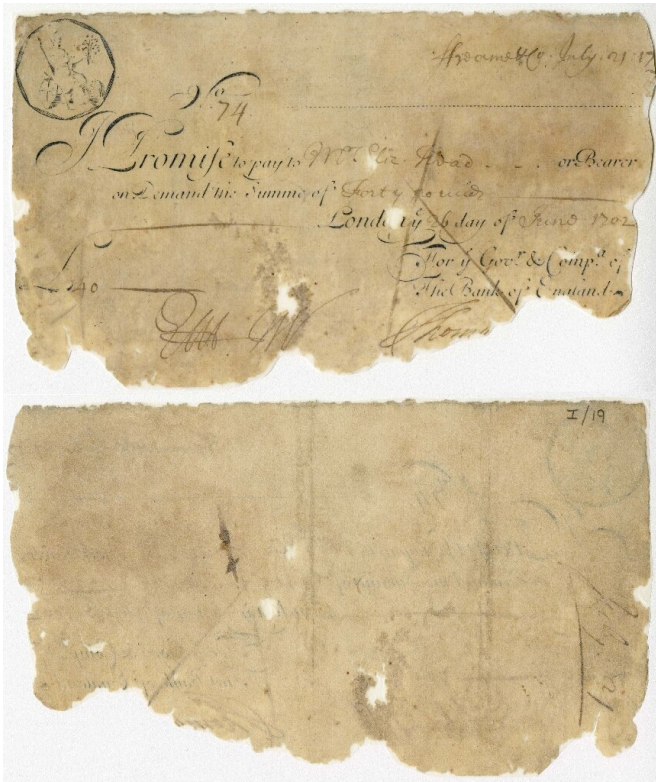 Freame & Co. July. 21. 17
No. 74
I Promise to pay to Mrs. Eliz. Head or Bearer
on Demand the Summe of Forty pounds
London ye 26 day of June 1702
For ye Govr. & Compa. of
The Bank of England
£ 40
Thomas
I/19
July 21